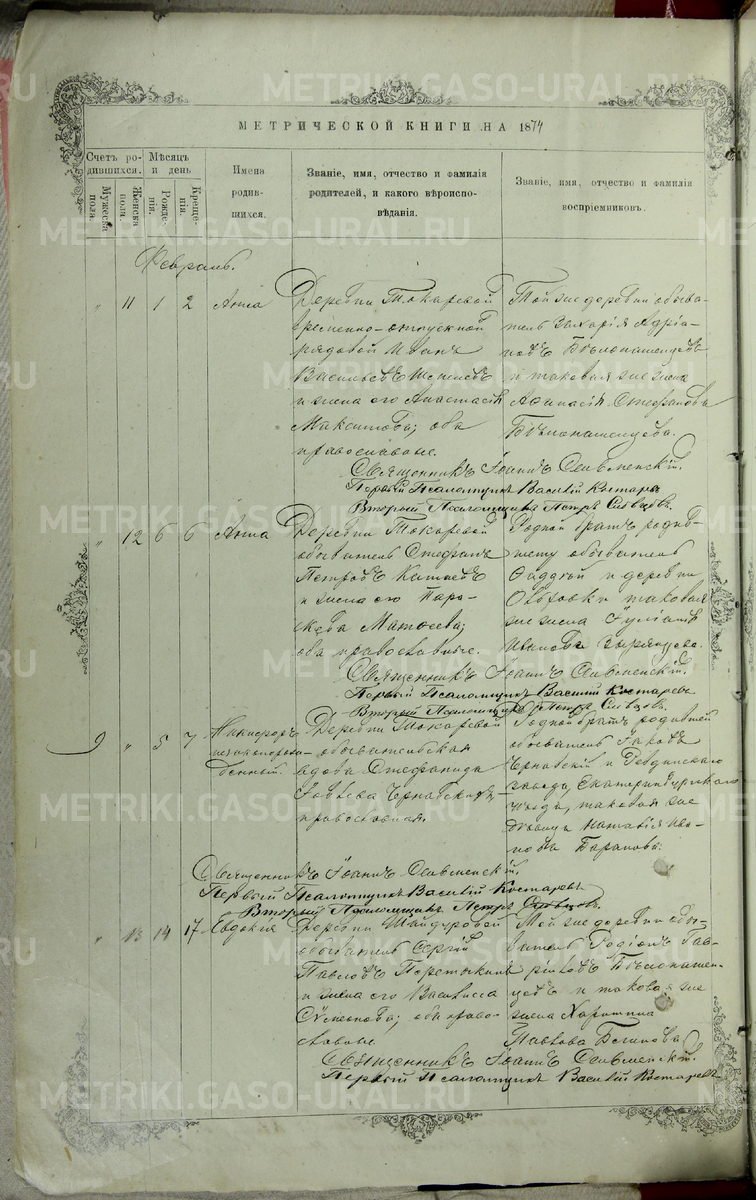 МЕТРИЧЕСКОЙ КНИГИ НА 1874
Счетъ ро-
дившихся.
Мужеска
пола.
Женска
пола.
Мѣсяцъ
и день
Рожде-
нія.
Креще-
нія.
Имена
родив-
шихся.
Званіе, имя, отчество и фамилія
родителей, и какого вѣроиспо-
вѣданія.
Званіе, имя, отчество и фамилія
воспріемниковъ.
Февраль.
" 11 1 2 Анна
Деревни Токаревой
временно-отпускной
рядовой Иванъ
Васильевъ
и жена его Анастасія
Максимова; оба
православные.
Той же деревни обыва-
тель Захарія Адріа-
новъ Бѣлопашенцевъ
и таковая же жена
Афанасія Стефанова
Бѣлопашенцева.
Священникъ Іоаннъ
Первый Псаломщикъ Василій Костаревъ
Второй Псаломщикъ Петръ Сивцовъ.
" 12 6 6 Анна
Деревни Токаревой
обыватель Стефанъ
Петровъ Китаевъ
и жена его Парас-
кева Матѳеева;
оба православные.
Родной братъ родив-
шему обыватель
Фаддей и деревни
таковая
же жена Іуліанія
Иванова Зырянцева.
Священникъ Іоаннъ
Первый Псаломщикъ Василій Костаревъ
Второй Псаломщикъ Петръ Сивцовъ.
9 " 5 7 Никифоръ
незаконорож-
денный.
Деревни Токаревой
обывательская
вдова Стефанида
Іовлева Чернавскихъ,
православная.
Родной братъ родившей
обыватель Іаковъ
Чернавскій и Ревдинскаго
завода, Екатеринбургскаго
уѣзда, таковая же
дѣвица Наталія Ива-
нова Баранова.
Священникъ Іоаннъ
Первый Псаломщикъ Василій Костаревъ
Второй Псаломщикъ Петръ Сивцовъ.
" 13 14 17 Евдокія
Деревни Шайдуровой
обыватель Сергій
Павловъ Перетыкинъ
и жена его Васса
Симеонова; оба право-
славные.
Той же деревни обы-
ватель Родіонъ Гав-
риловъ Бѣлопашен-
цевъ и таковая же
жена Харитина
Павлова
Священникъ Іоаннъ
Первый Псаломщикъ Василій Костаревъ
METRIKI.GASO-URAL.RU